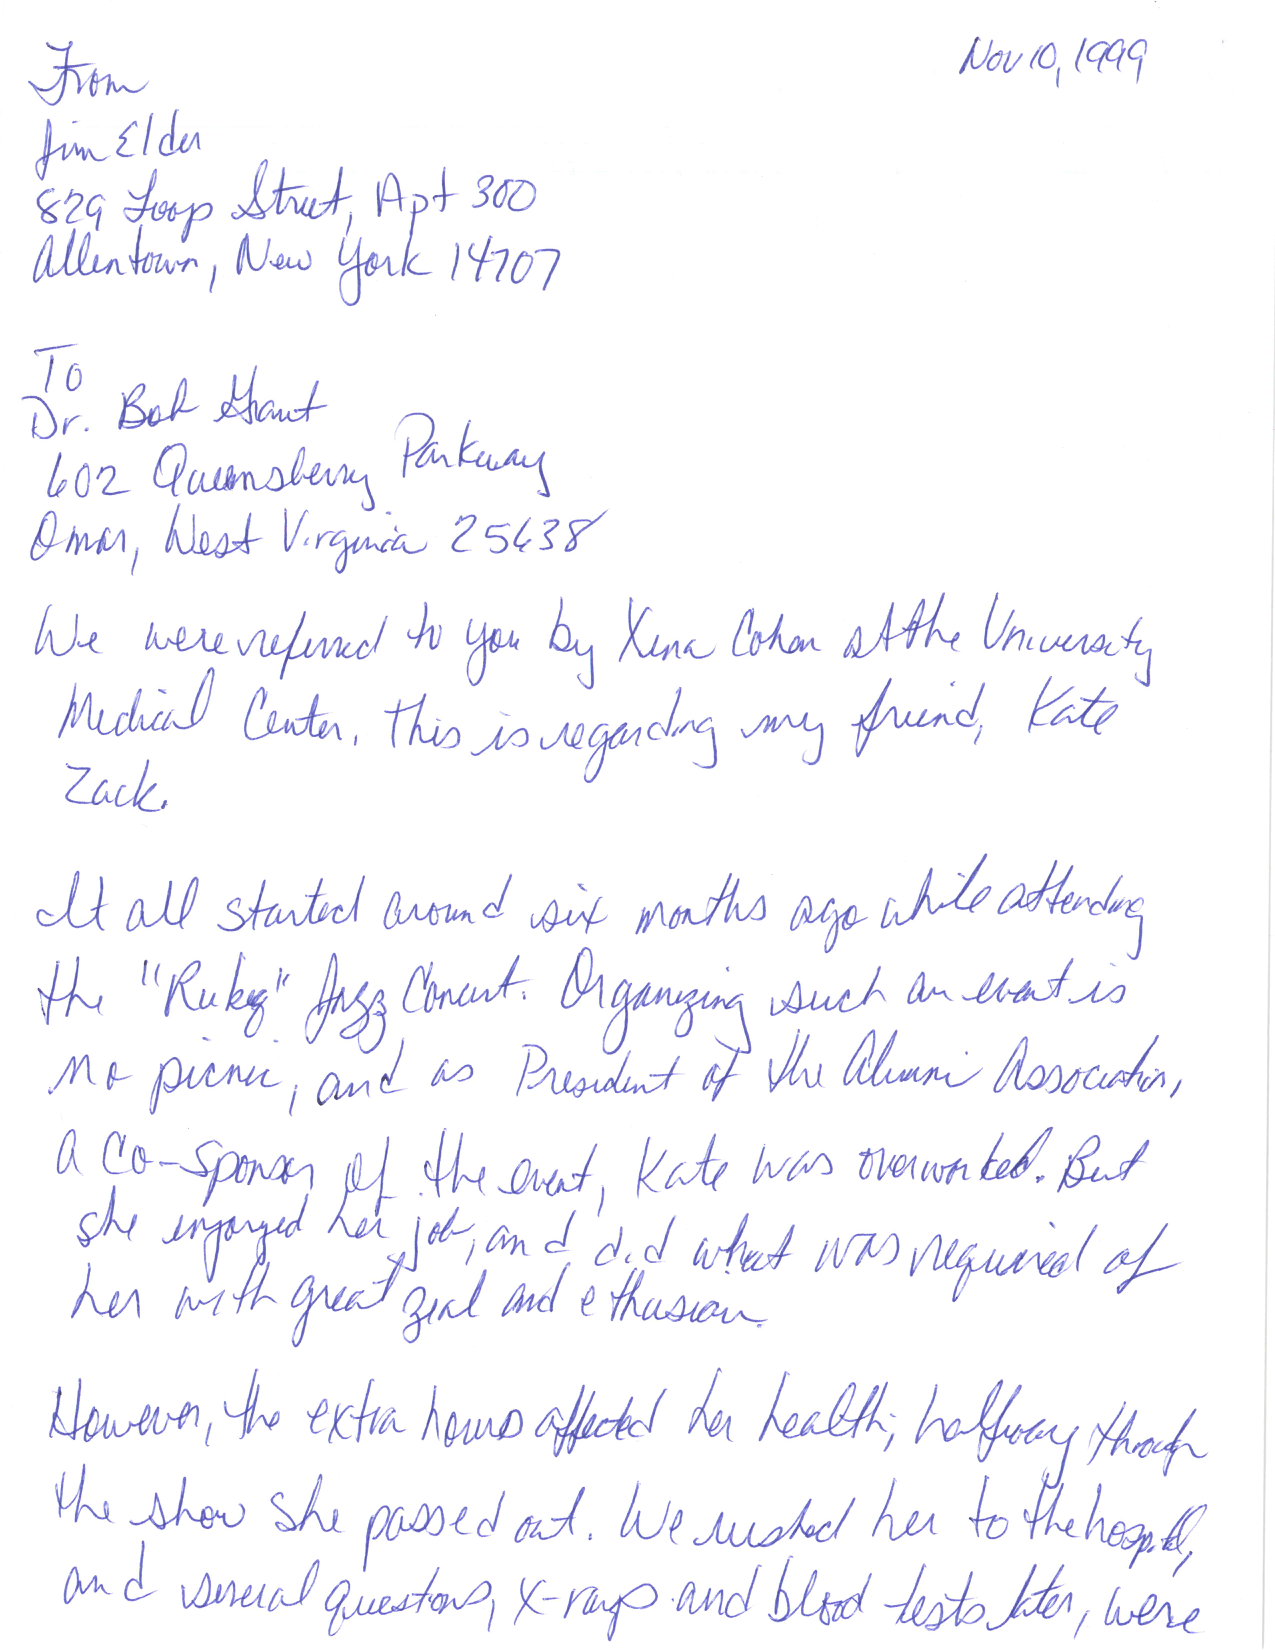 Nov 10, 1999
From
Jim Elder
829 Loop Street, Apt 300
Allentown, New York 14707
To
Dr. Bob Grant
602 Queensberry Parkway
Omar, West Virginia 25638
We were referred to you by Xena Cohen at the University
Medical Center. This is regarding my friend, Kate
Zack.
It all started around six months ago while attending
the "Rubeq" Jazz Concert. Organizing such an event is
no picnic, and as President of the Alumni Association,
a co-sponsor of the event, Kate was overworked. But
she enjoyed her job, and did what was required of
her with great zeal and ethusiasm.
However, the extra hours affected her health; halfway through
the show she passed out. We rushed her to the hospital,
and several questions, x-rays and blood tests later, were